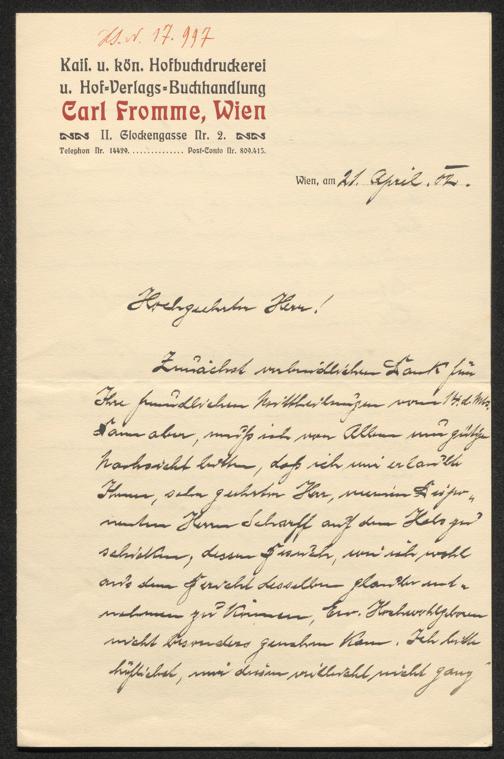 H.I.N. 17.997
Kais. u. kön. Hofbuchdruckerei
u. Hof-Verlags-Buchhandlung
Carl Fromme, Wien
II. Glockengasse Nr. 2.
Telephon Nr. 14429. ............. Post-Conto Nr. 809.415.
Wien, am 21. April. 02.
Hochgeehrter Herr!
Zunächst verbindlichen Dank für
Ihre freundlichen Mittheilungen vom 14. d. Mts.
Dann aber, muß ich vor Allem um gütige
Nachsicht bitten, daß ich mir erlaubte
Ihnen, sehr geehrter Herr, meinen Dispo-
nenten Herrn Scharff auf den Hals zu
schicken, dessen Besuch, wie ich wohl
aus dem Bericht desselben glaube ent-
nehmen zu können, Euer Hochwohlgeboren
nicht besonders genehm kam. Ich bitte
höflichst, mir diesen vielleicht nicht ganz